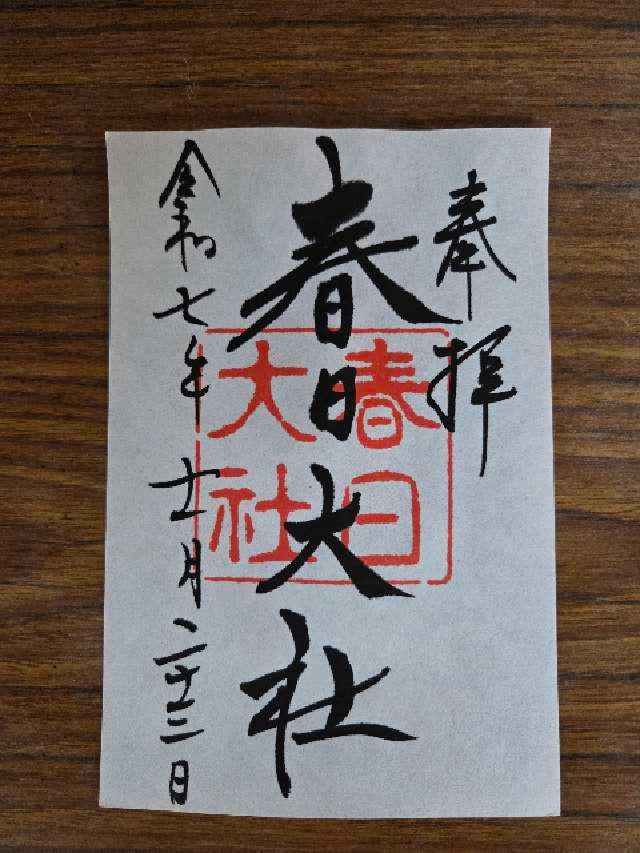 奉拝
春日大社
春日
大社
令和七年十一月二十三日